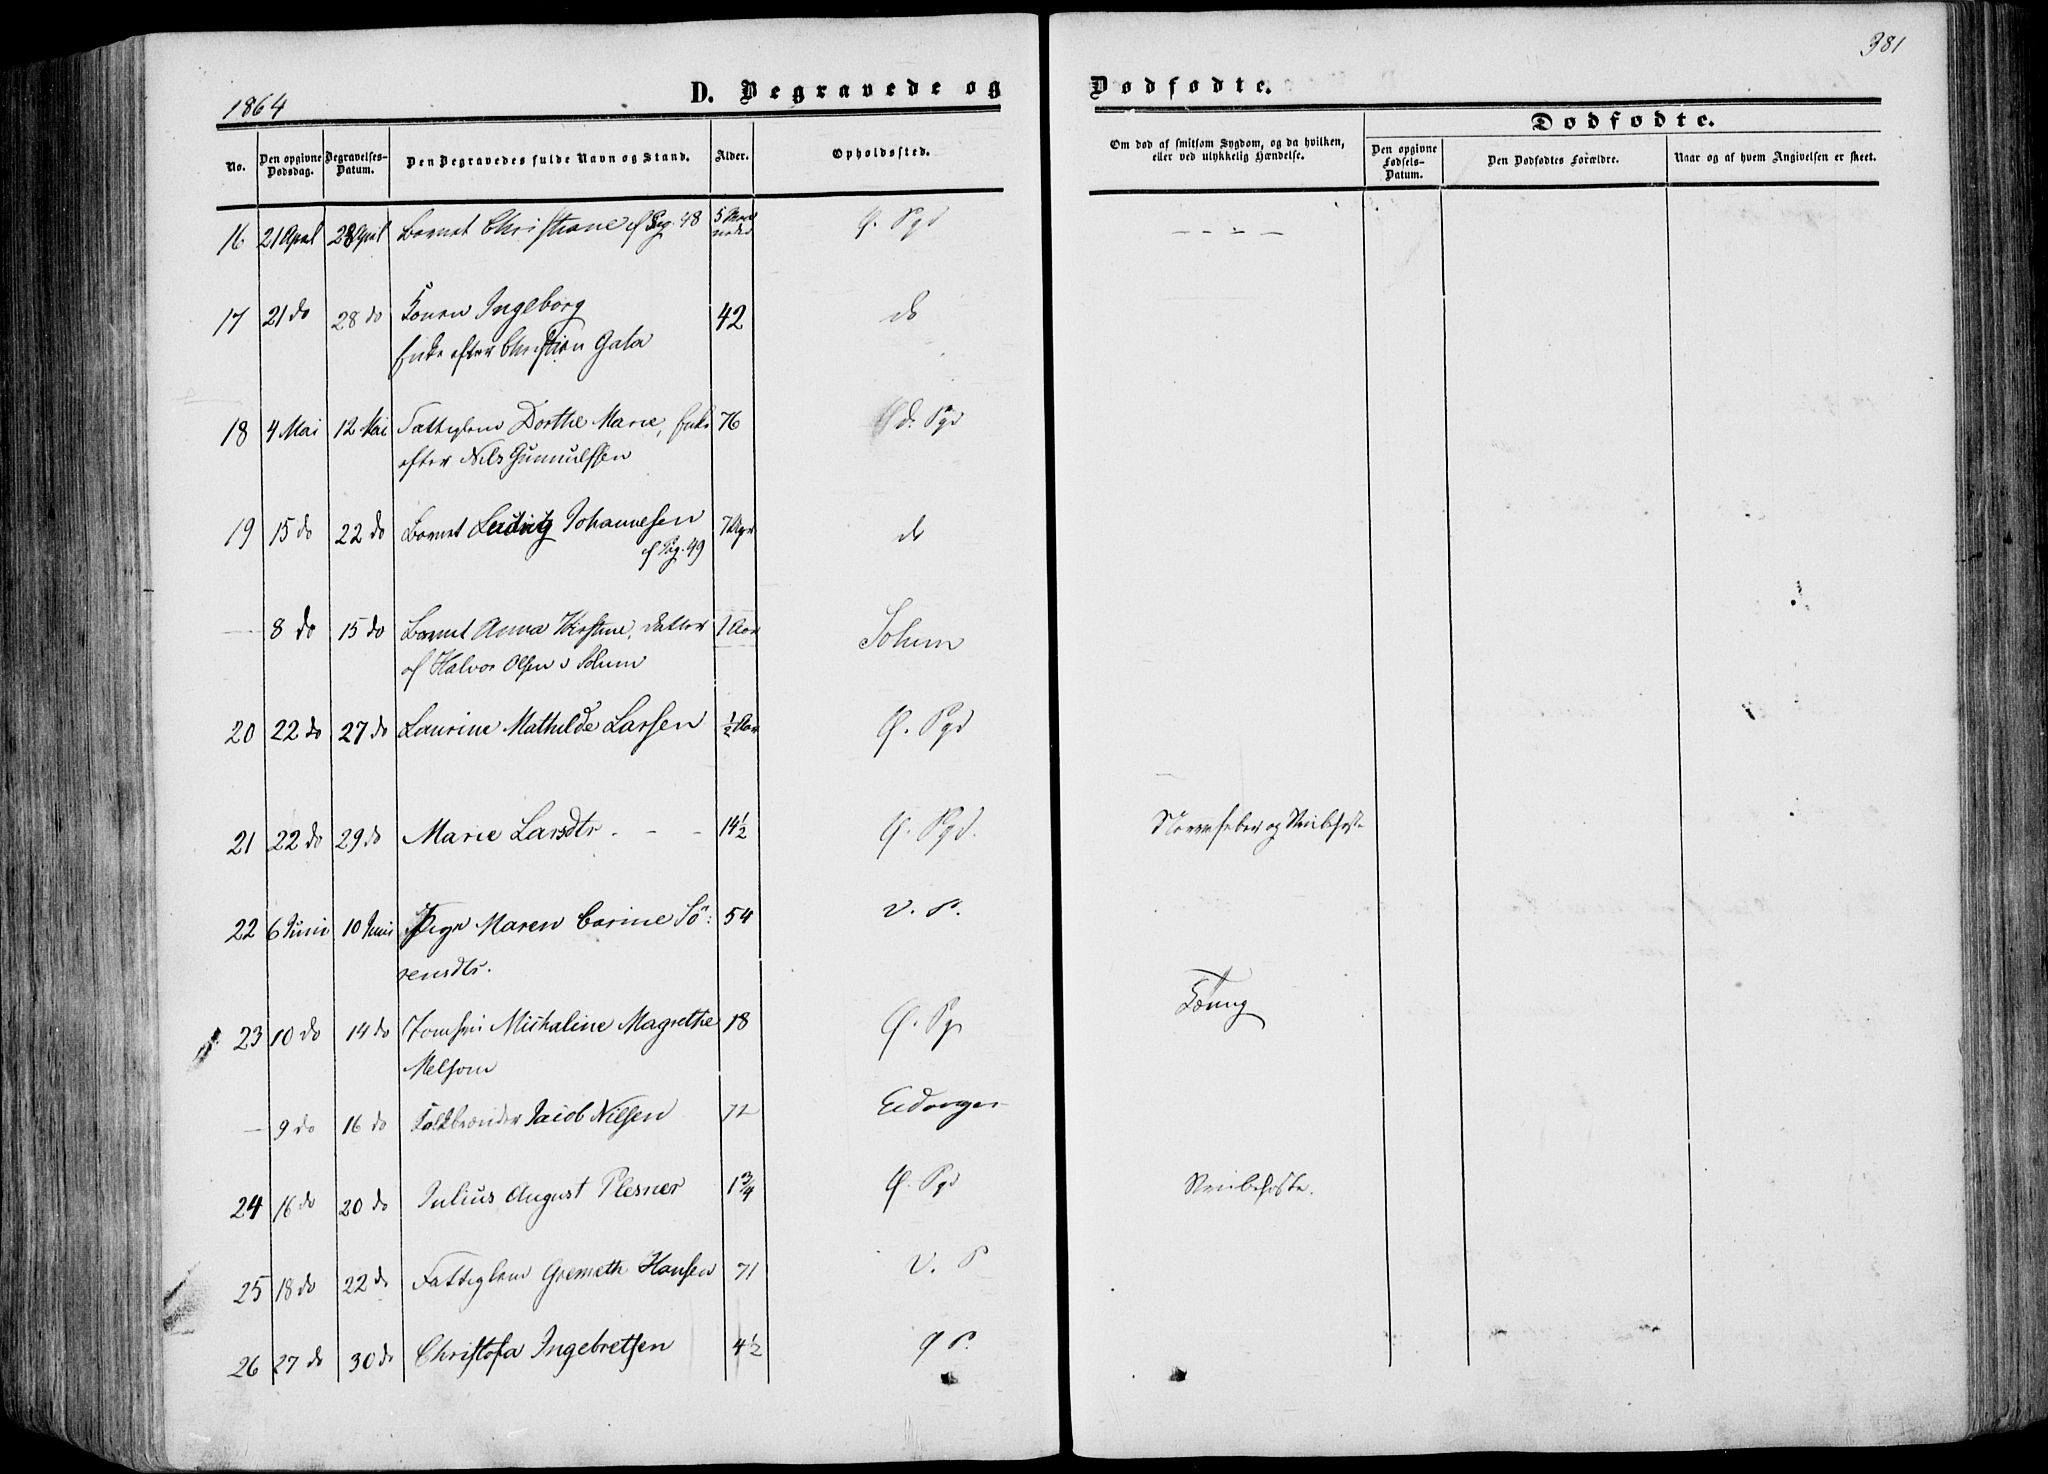 381
1864
D. Begravede og Dødfødte.
No.
Den opgivne Dødsdag.
Begravelses-Datum.
Den Begravedes fulde Navn og Stand.
Alder.
Opholdssted.
Om død af smitsom Sygdom, og da hvilken, eller ved ulykkelig Hændelse.
Dødfødte.
Den opgivne Fødsels-Datum.
Den Dødfødtes Forældre.
Naar og af hvem Angivelsen er skeet.
16 21 April 28 April Barnet Christiane cf Pag. 48 5 Maaneder Ø. Pgd - - - -
17 21 do 28 do Konen Ingeborg 42 do
Enke efter Christian Gata
18 4 Mai 12 Mai Fattiglem Dorthe Marie, Enke 76 Ø. Pgd
efter Nils Gunnulfsen
19 15 do 22 do Barnet Ludvig Johannesen 7 Uger do
cf Pag. 49
— 8 do 15 do Barnet Anna Kirstine, Datter 1 Aar Solum
af Halvor Olsen i Solum
20 22 do 27 do Laurine Mathilde Larsen ½ Aar Ø. Pgd
21 22 do 29 do Marie Larsdtr. - - 14½ Ø. Pgd. Nervefeber og Stribehoste
22 6 Juni 10 Juni Pige Maren Carine Sö: 54 V. P.
rensdtr.
23 10 do 14 do Jomfru Michaline Magrethe 18 Ø. Pg. Tæring
Melsom
— 9 do 16 do Kalkbrænder Jacob Nilsen 72 Eidanger
24 16 do 20 do Julius August Plesner 1¾ Ø. Pgd Stribehoste.
25 18 do 22 do Fattiglem Hansen 71 V. P
26 27 do 30 do Christofa Ingebretsen 4½ Ø P.